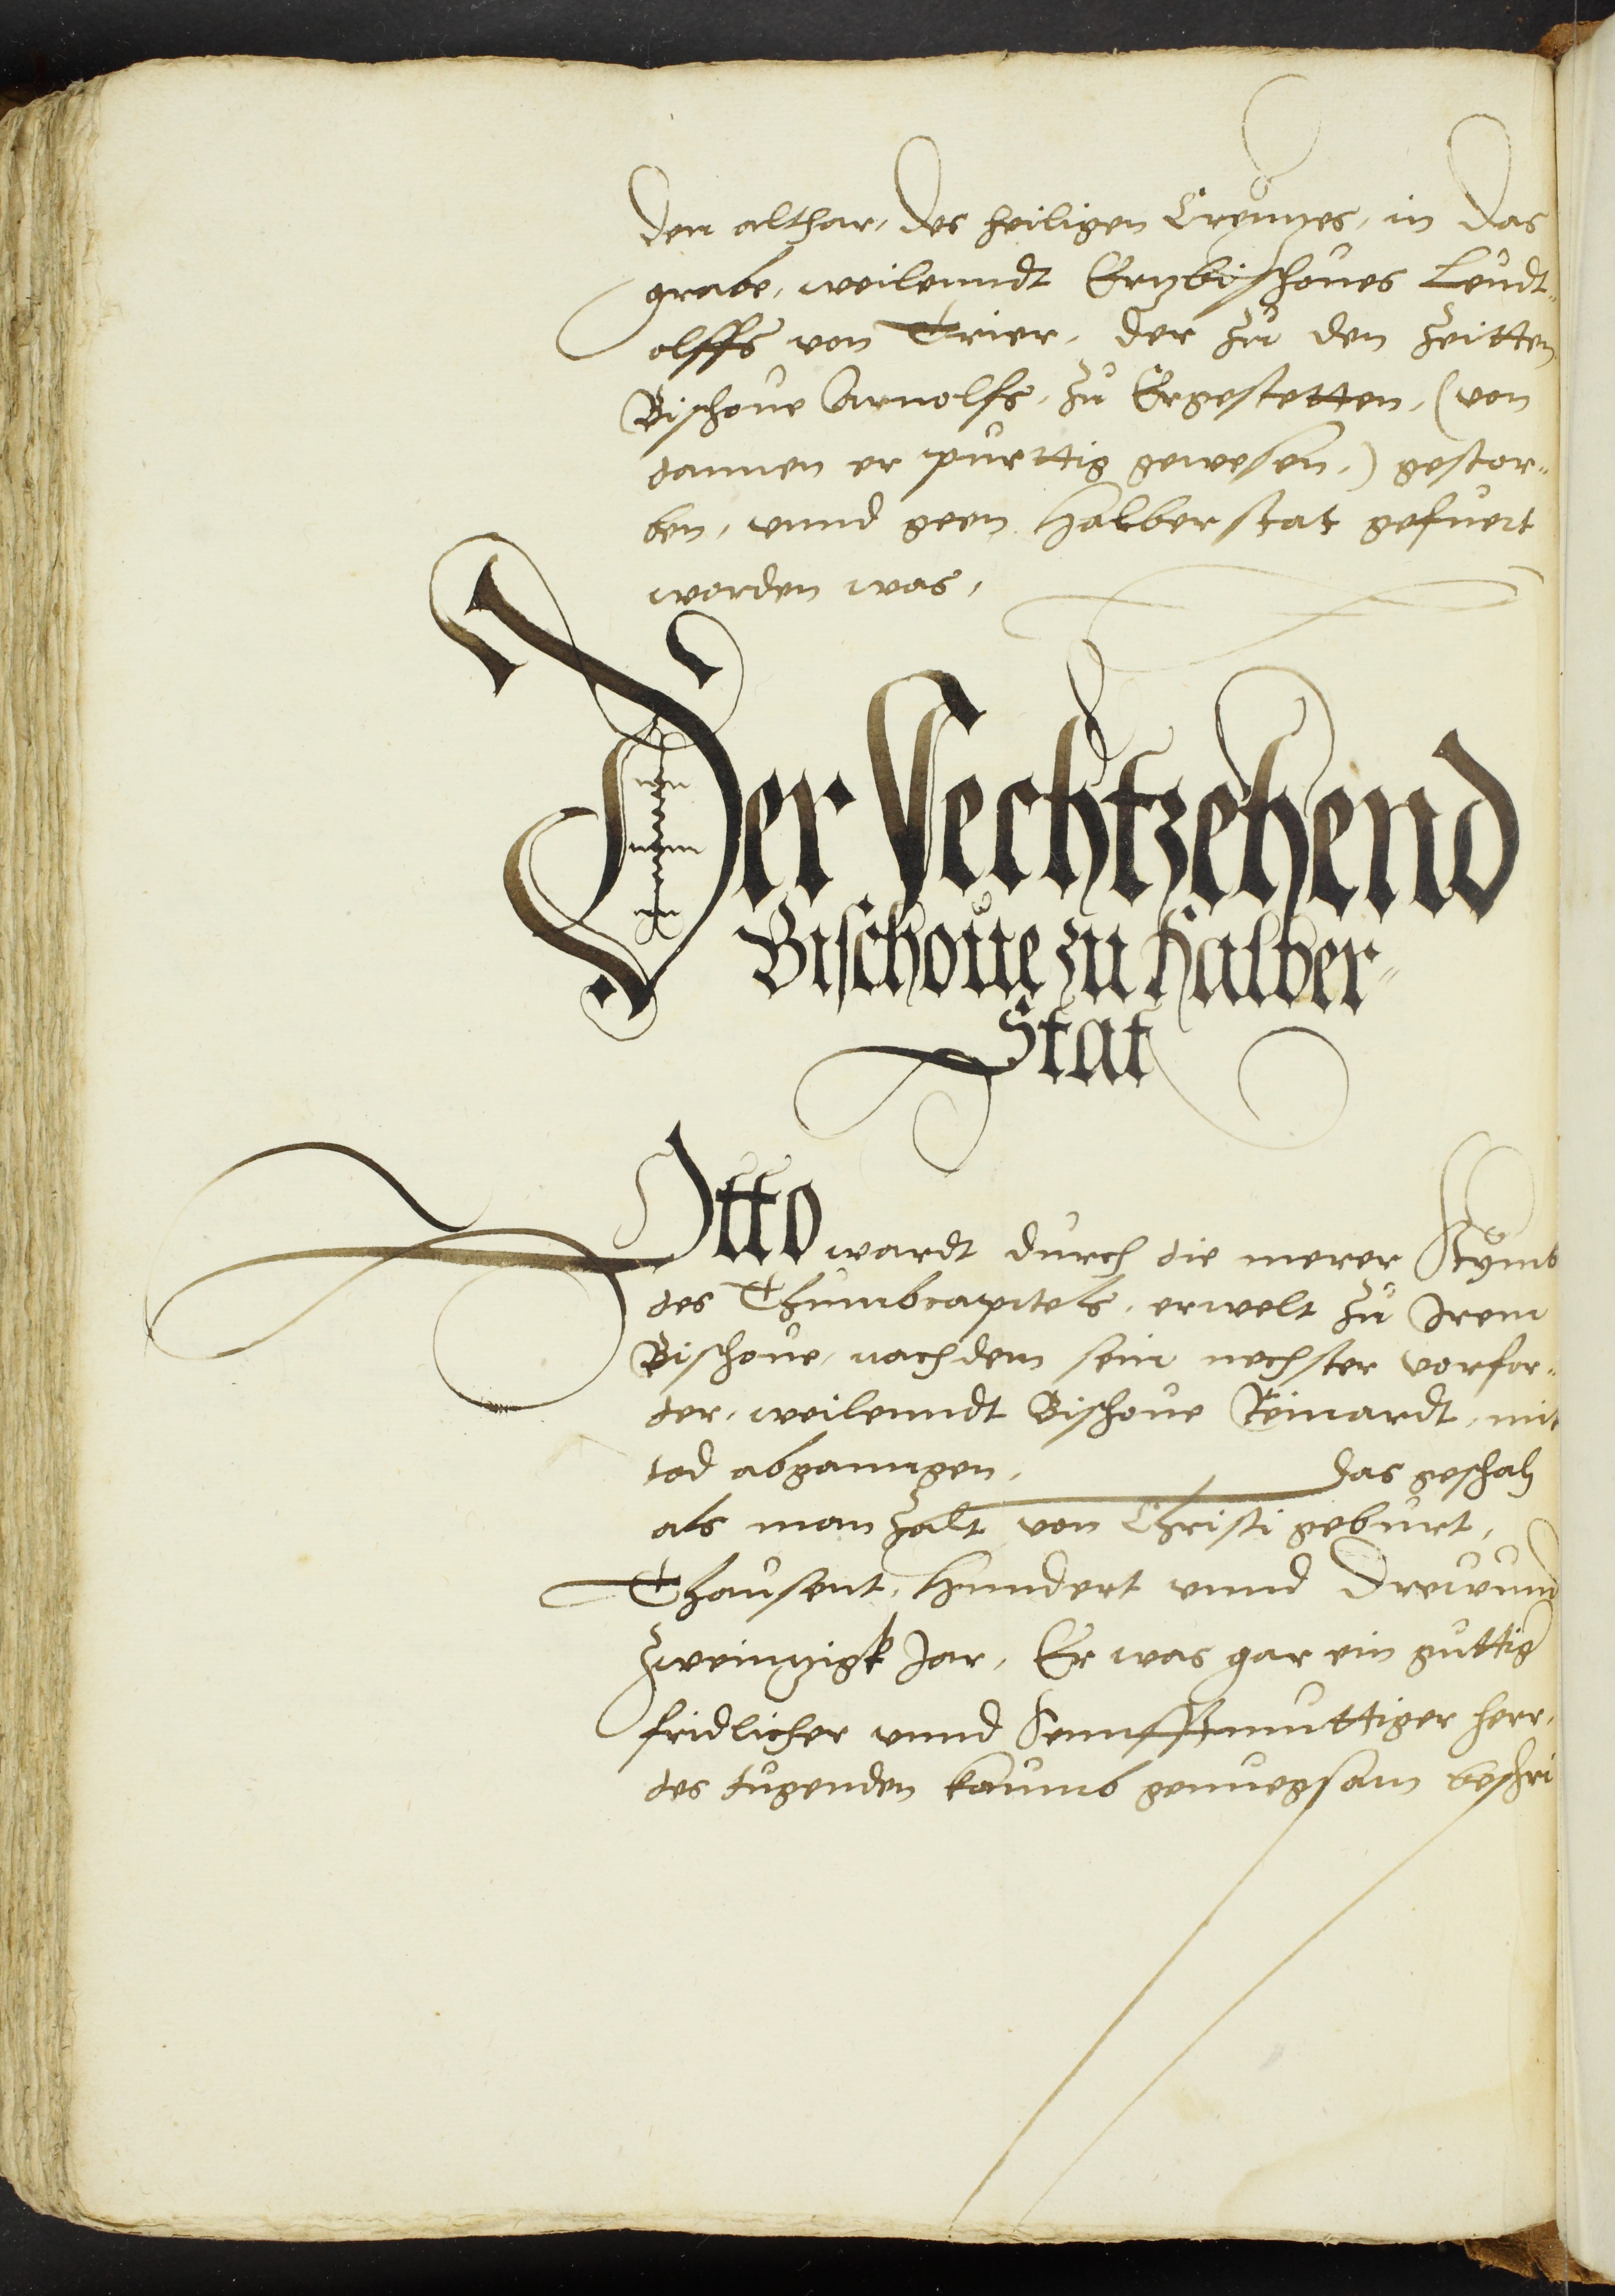 den althar, des heiligen Creutzes, in das
grabe, weilenndt Ertzbischoues Leudt-
olffs von Trier, der zu den Zeitten
Bischoue Arnolfs, zu Ergestetten, (von
dannen er purttig gewesen,) gestor-
ben, vnnd geen Halberstat gefuert
worden was,
Der Sechtzehend
Bischoue zu Halber-
Stat
Otto wardt durch die merer Stymb
des Thumbcapitels, erwelt zu Irem
Bischoue, nachdem sein nechster vorfor-
der, weilenndt Bischoue Reinardt, mit
tod abganngen, Das geschah
als man zalt von Christi geburt,
Thausent, Hundert vnnd Dreuvnnd
zweintzigk Jar, Er was gar ein guttig
fridlicher vnnd Sennfftmuttiger herr,
des tugenden kaumb genuegsam beschri